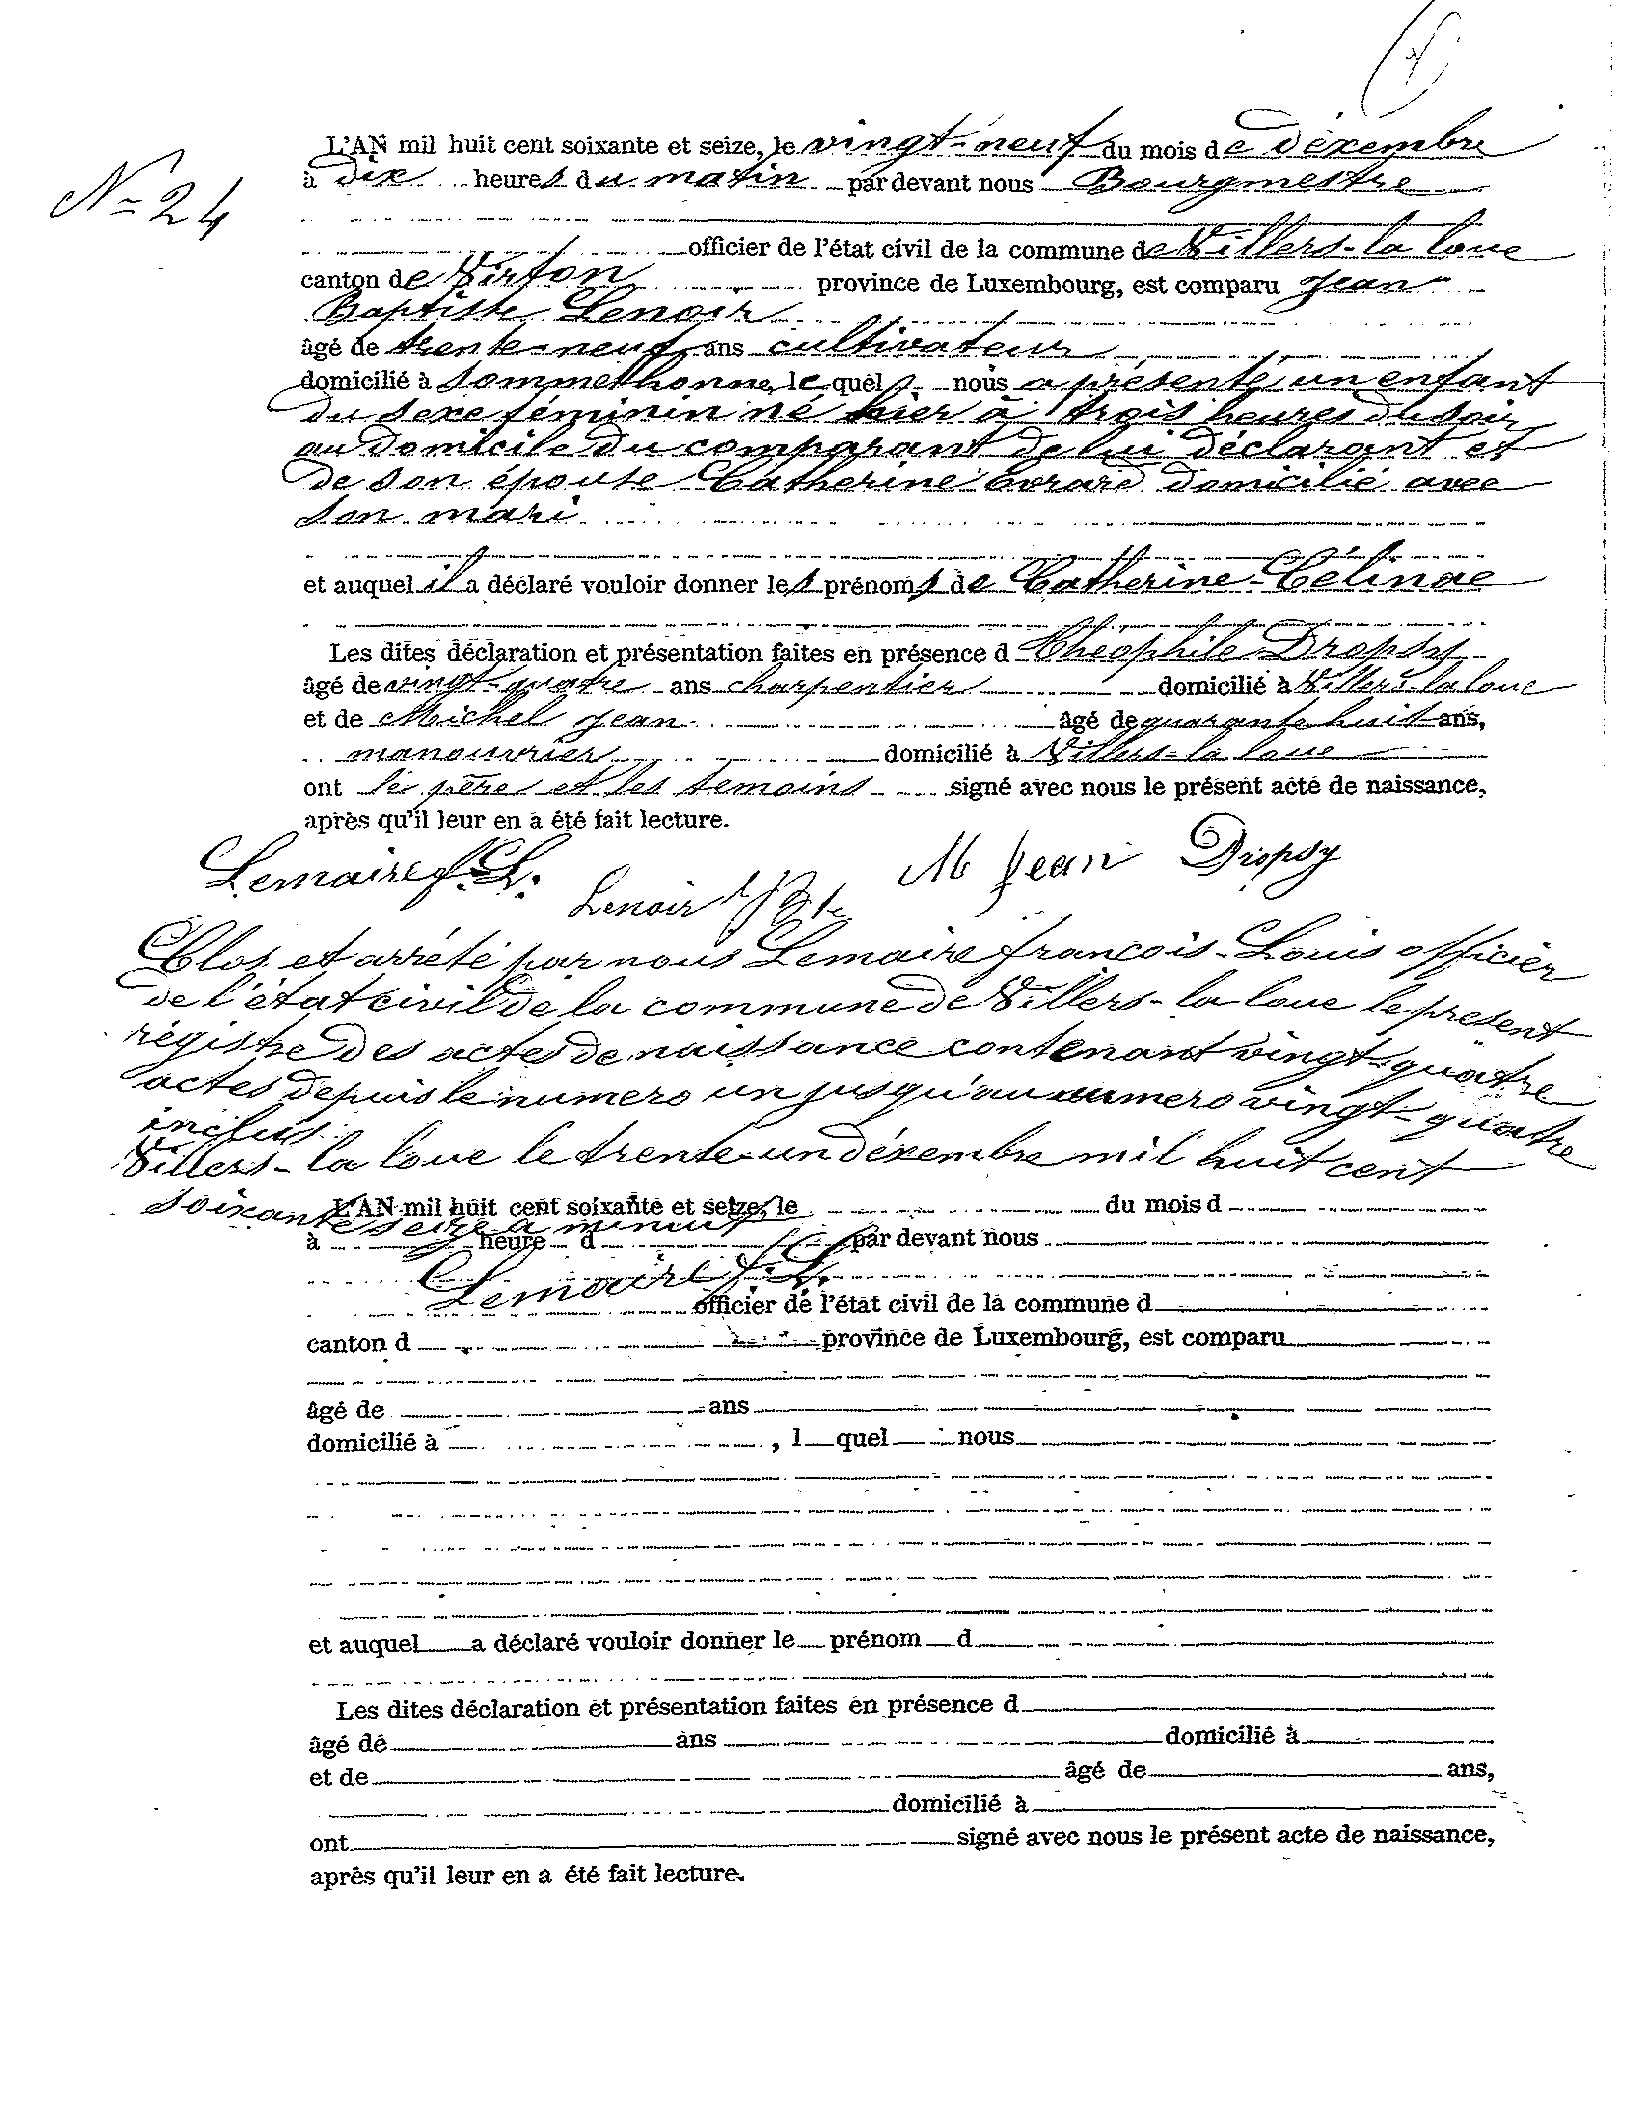 N° 24
L'AN mil huit cent soixante et seize, le vingt-neuf du mois de déxembre
à dix heures du matin par devant nous Bourgmestre
officier de l'état civil de la commune de Villers-la loue
canton de Virton province de Luxembourg, est comparu Jean
Baptiste Lenoir
âgé de trente-neuf ans cultivateur
domicilié à Sommethonne, lequel nous a présenté un enfant
du sexe féminin né hier à trois heures du soir
au domicile du comparant de lui déclarant et
de son épouse Catherine Evrard domicilié avec
son mari
et auquel il a déclaré vouloir donner les prénoms de Catherine-Célinae
Les dites déclaration et présentation faites en présence d Théophile Dropsy
âgé de vingt-quatre ans charpentier domicilié à Villers-la loue
et de Michel Jean âgé de quarante huit ans,
manouvrier domicilié à Villers-la loue
ont le père et les temoins signé avec nous le présent acte de naissance,
après qu'il leur en a été fait lecture.
Lemaire f. L. Lenoir J Bte M Jean Dropsy
Clos et arrété par nous Lemaire françois-Louis officier
de l'état civil de la commune de Villers-la loue le présent
régistre des actes de naissance contenant vingt-quatre
actes depuis le numero un jusqu'au numero vingt-quatre
inclus
Villers-la loue le trente-un déxembre mil huit cent
soixante seize a minuit
Lemaire f. L.
L'AN mil huit cent soixante et seize, le du mois d
à heure d par devant nous
officier de l'état civil de la commune d
canton d province de Luxembourg, est comparu
âgé de ans
domicilié à , l quel nous
et auquel a déclaré vouloir donner le prénom d
Les dites déclaration et présentation faites en présence d
âgé de ans domicilié à
et de âgé de ans,
domicilié à
ont signé avec nous le présent acte de naissance,
après qu'il leur en a été fait lecture.